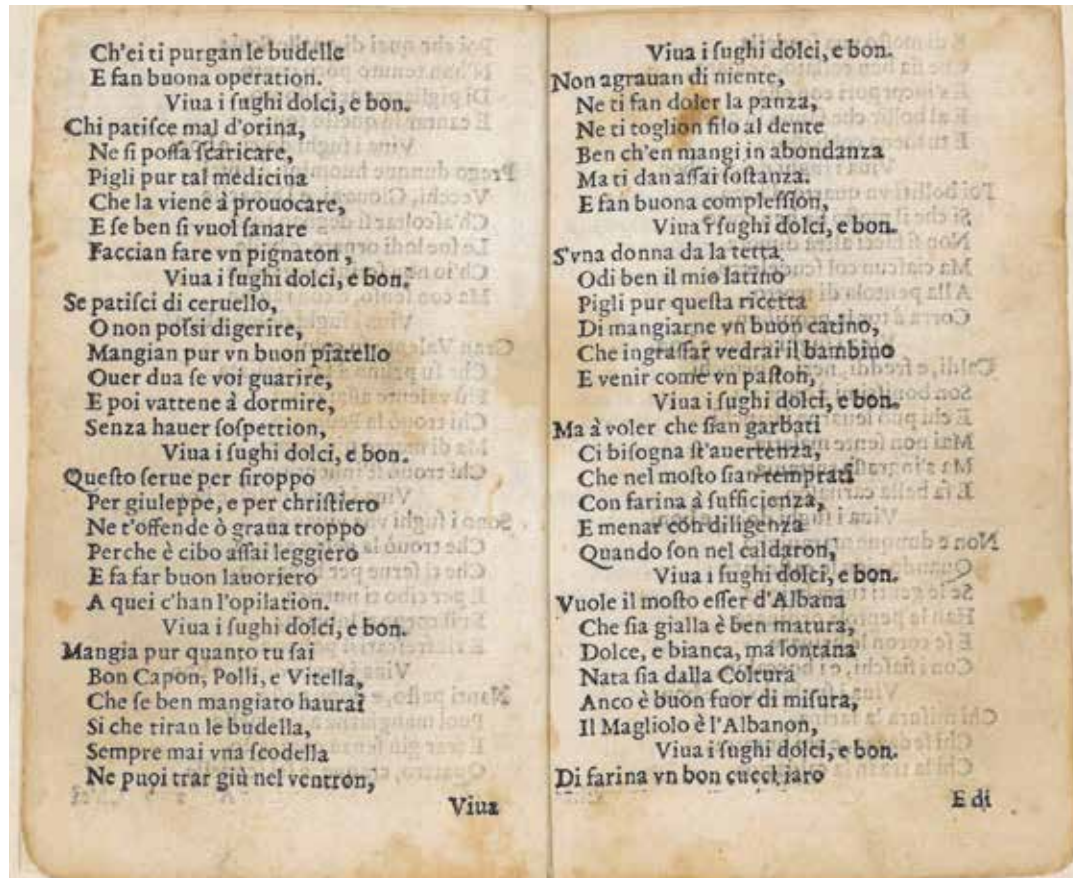 Ch'ei ti purgan le budelle
E fan buona operation.
Viua i ſughi dolci, e bon.
Chi patiſce mal d'orina,
Ne ſi poſſa ſcaricare,
Pigli pur tal medicina
Che la viene à prouocare,
E ſe ben ſi vuol ſanare
Faccian fare vn pignaton,
Viua i ſughi dolci, e bon.
Se patiſci di ceruello,
O non poſsi digerire,
Mangian pur vn buon piatello
Ouer dua ſe voi guarire,
E poi vattene à dormire,
Senza hauer ſoſpettion,
Viua i ſughi dolci, e bon.
Queſto ſerue per ſiroppo
Per giuleppe, e per chriſtiero
Ne t'offende ò graua troppo
Perche è cibo aſſai leggiero
E fa far buon lauoriero
A quei c'han l'opilation.
Viua i ſughi dolci, e bon.
Mangia pur quanto tu ſai
Bon Capon, Polli, e Vitella,
Che ſe ben mangiato haurai
Si che tiran le budella,
Sempre mai vna ſcodella
Ne puoi trar giù nel ventron,
Viua
Viua i ſughi dolci, e bon.
Non agrauan di niente,
Ne ti fan doler la panza,
Ne ti toglion filo al dente
Ben ch'en mangi in abondanza
Ma ti dan aſſai ſoſtanza.
E fan buona compleſſion,
Viua i ſughi dolci, e bon.
S'vna donna da la tetta
Odi ben il mio latino
Pigli pur queſta ricetta
Di mangiarne vn buon catino,
Che ingraſſar vedrai il bambino
E venir come vn paſton,
Viua i ſughi dolci, e bon.
Ma à voler che ſian garbati
Ci biſogna ſt'auertenza,
Che nel moſto ſian temprati
Con farina à ſufficienza,
E menar con diligenza
Quando ſon nel caldaron,
Viua i ſughi dolci, e bon.
Vuole il moſto eſſer d'Albana
Che ſia gialla è ben matura,
Dolce, e bianca, ma lontana
Nata ſia dalla Coltura
Anco è buon fuor di miſura,
Il Magliolo è l'Albanon,
Viua i ſughi dolci, e bon.
Di farina vn bon cucchiaro
E di